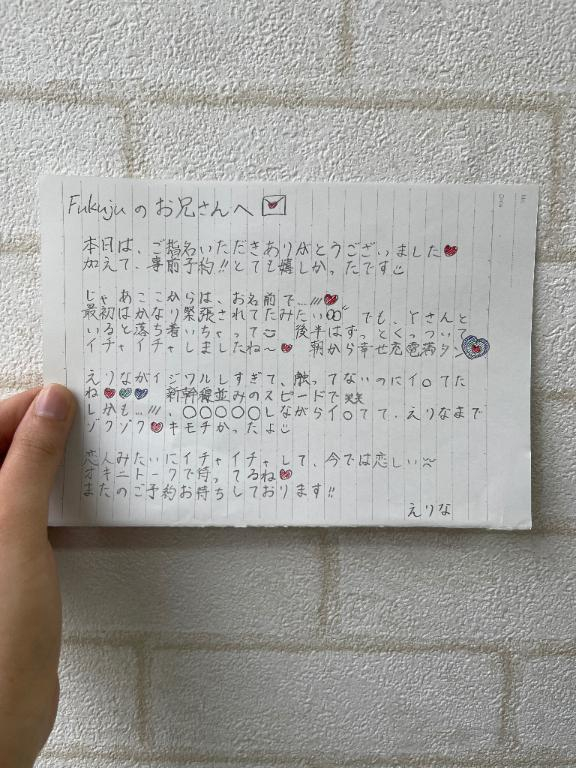 Fukujuのお兄さんへ
本日は、ご指名いただきありがとうございました
加えて、事前予約!!とても嬉しかったです
じゃあここからは、お名前で...///
最初はかなり緊張されてたみたい でも、とさんと
いると落ち着いちゃって 後半はずっとくっついて
イチャイチャしましたね〜 朝から幸せ充電満タン
えりながイジワルしすぎて、触ってないのにイ○てた
ね 新幹線並みのスピードで笑笑
しかも...///、○○○○○しながらイ○てて、えりなまで
ゾクゾクキモチかったよ
恋人みたいにイチャイチャして、今では恋しい
オキニトークで待ってるね
またのご予約お待ちしております!!
えりな